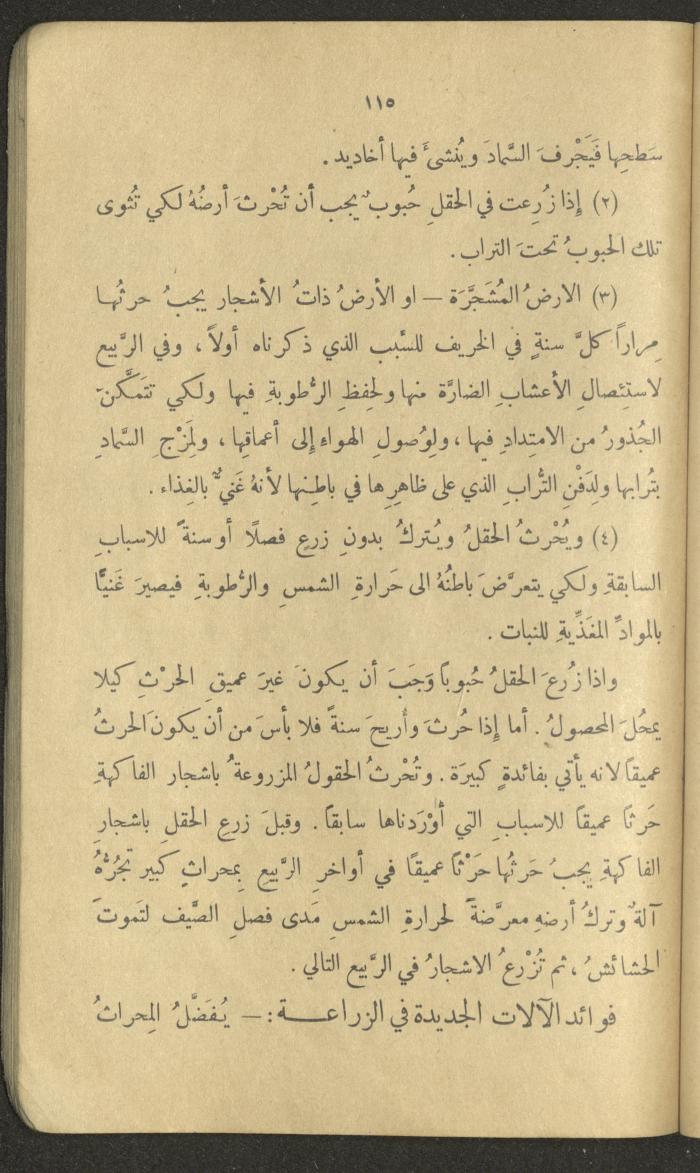 ١١٥
سَطحِها فَيَجْرفَ السَّمادَ ويُنشىَٔ فيها أخاديد .
(٢) إِذا زُرِعت في الحقلِ حُبوبٌ يجب أن تُحْرثَ أرضُهُ لكي تُثوى
تلك الحبوبُ تحتَ التراب .
(٣) الارضُ المُشَجَّرَة – او الأرضُ ذاتُ الأشجار يجبُ حرثُها
مِراراً كلَّ سنةٍ في الخريف للسَّبب الذي ذكرناه أولاً ، وفي الرَّبيع
لاستِئصالِ الأعشابِ الضارَّة منها ولحِفظِ الرُّطوبةِ فيها ولكي تتَمَكَّنَ
الجُذورُ من الامتِدادِ فيها ، ولِوُصولِ الهواءِ إِلى أعماقِها ، ولَمَزْجِ السَّمادِ
بتُرابها ولِدَفْنِ التُّرابِ الذي على ظاهرِها في باطِنها لأنهُ غَنيٌّ بالغِذاء .
(٤) ويُحْرثُ الحقلُ ويُتركُ بدونِ زرعٍ فصلًا أو سنةً للاسبابِ
السابقةِ ولكي يتعرَّضَ باطنُهُ الى حَرارةِ الشمسِ والرُّطوبةِ فيصيرَ غَنيًّا
بالموادِّ المغَذِّيةِ للنبات .
واذا زُرعَ الحقلُ حُبوباً وَجَبَ أن يكونَ غيرَ عميقِ الحرْثِ كيلا
يمحُلَ المحصولُ . أما إِذا حُرثَ وأُريحَ سنةً فلا بأسَ من أن يكونَ الحرثُ
عميقاً لانه يأتي بفائدةٍ كبيرَة . وتُحْرثُ الحقولُ المزروعةُ باشجار الفاكهةِ
حَرثاً عميقاً للاسبابِ التي أوْرَدناها سابقاً . وقبلَ زرعِ الحقلِ باشجارِ
الفاكهةِ يجبُ حَرثُها حَرْثاً عميقاً في أواخرِ الرَّبيعِ بِمحراثٍ كبير تجُرُّهُ
آلةٌ وتركُ أرضهِ معرَّضةً لحرارةِ الشمسِ مَدى فصلِ الصَّيف لتَموتَ
الحشائشُ ، ثم تُزْرعُ الاشجارُ في الرَّبيع التالي .
فوائد الآلات الجديدة في الزراعــــة : – يُفَضَّلُ المِحراثُ